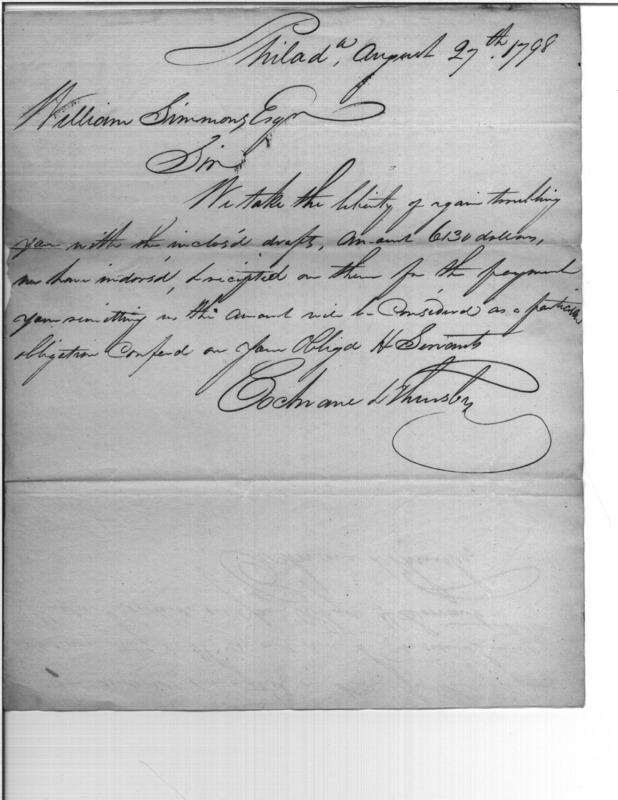 Philad.a, August 27th. 1798
William Simmons, Esqr
Sir
We take the liberty of again troubling
you with the inclos'd drafts, Amount 6130 dollars,
we have indors'd, & recipted on them for the payment
your remitting us the amount will be Considered as a particular
obligation Conferd on your Obligd H Servants
Cochrane & Thursby